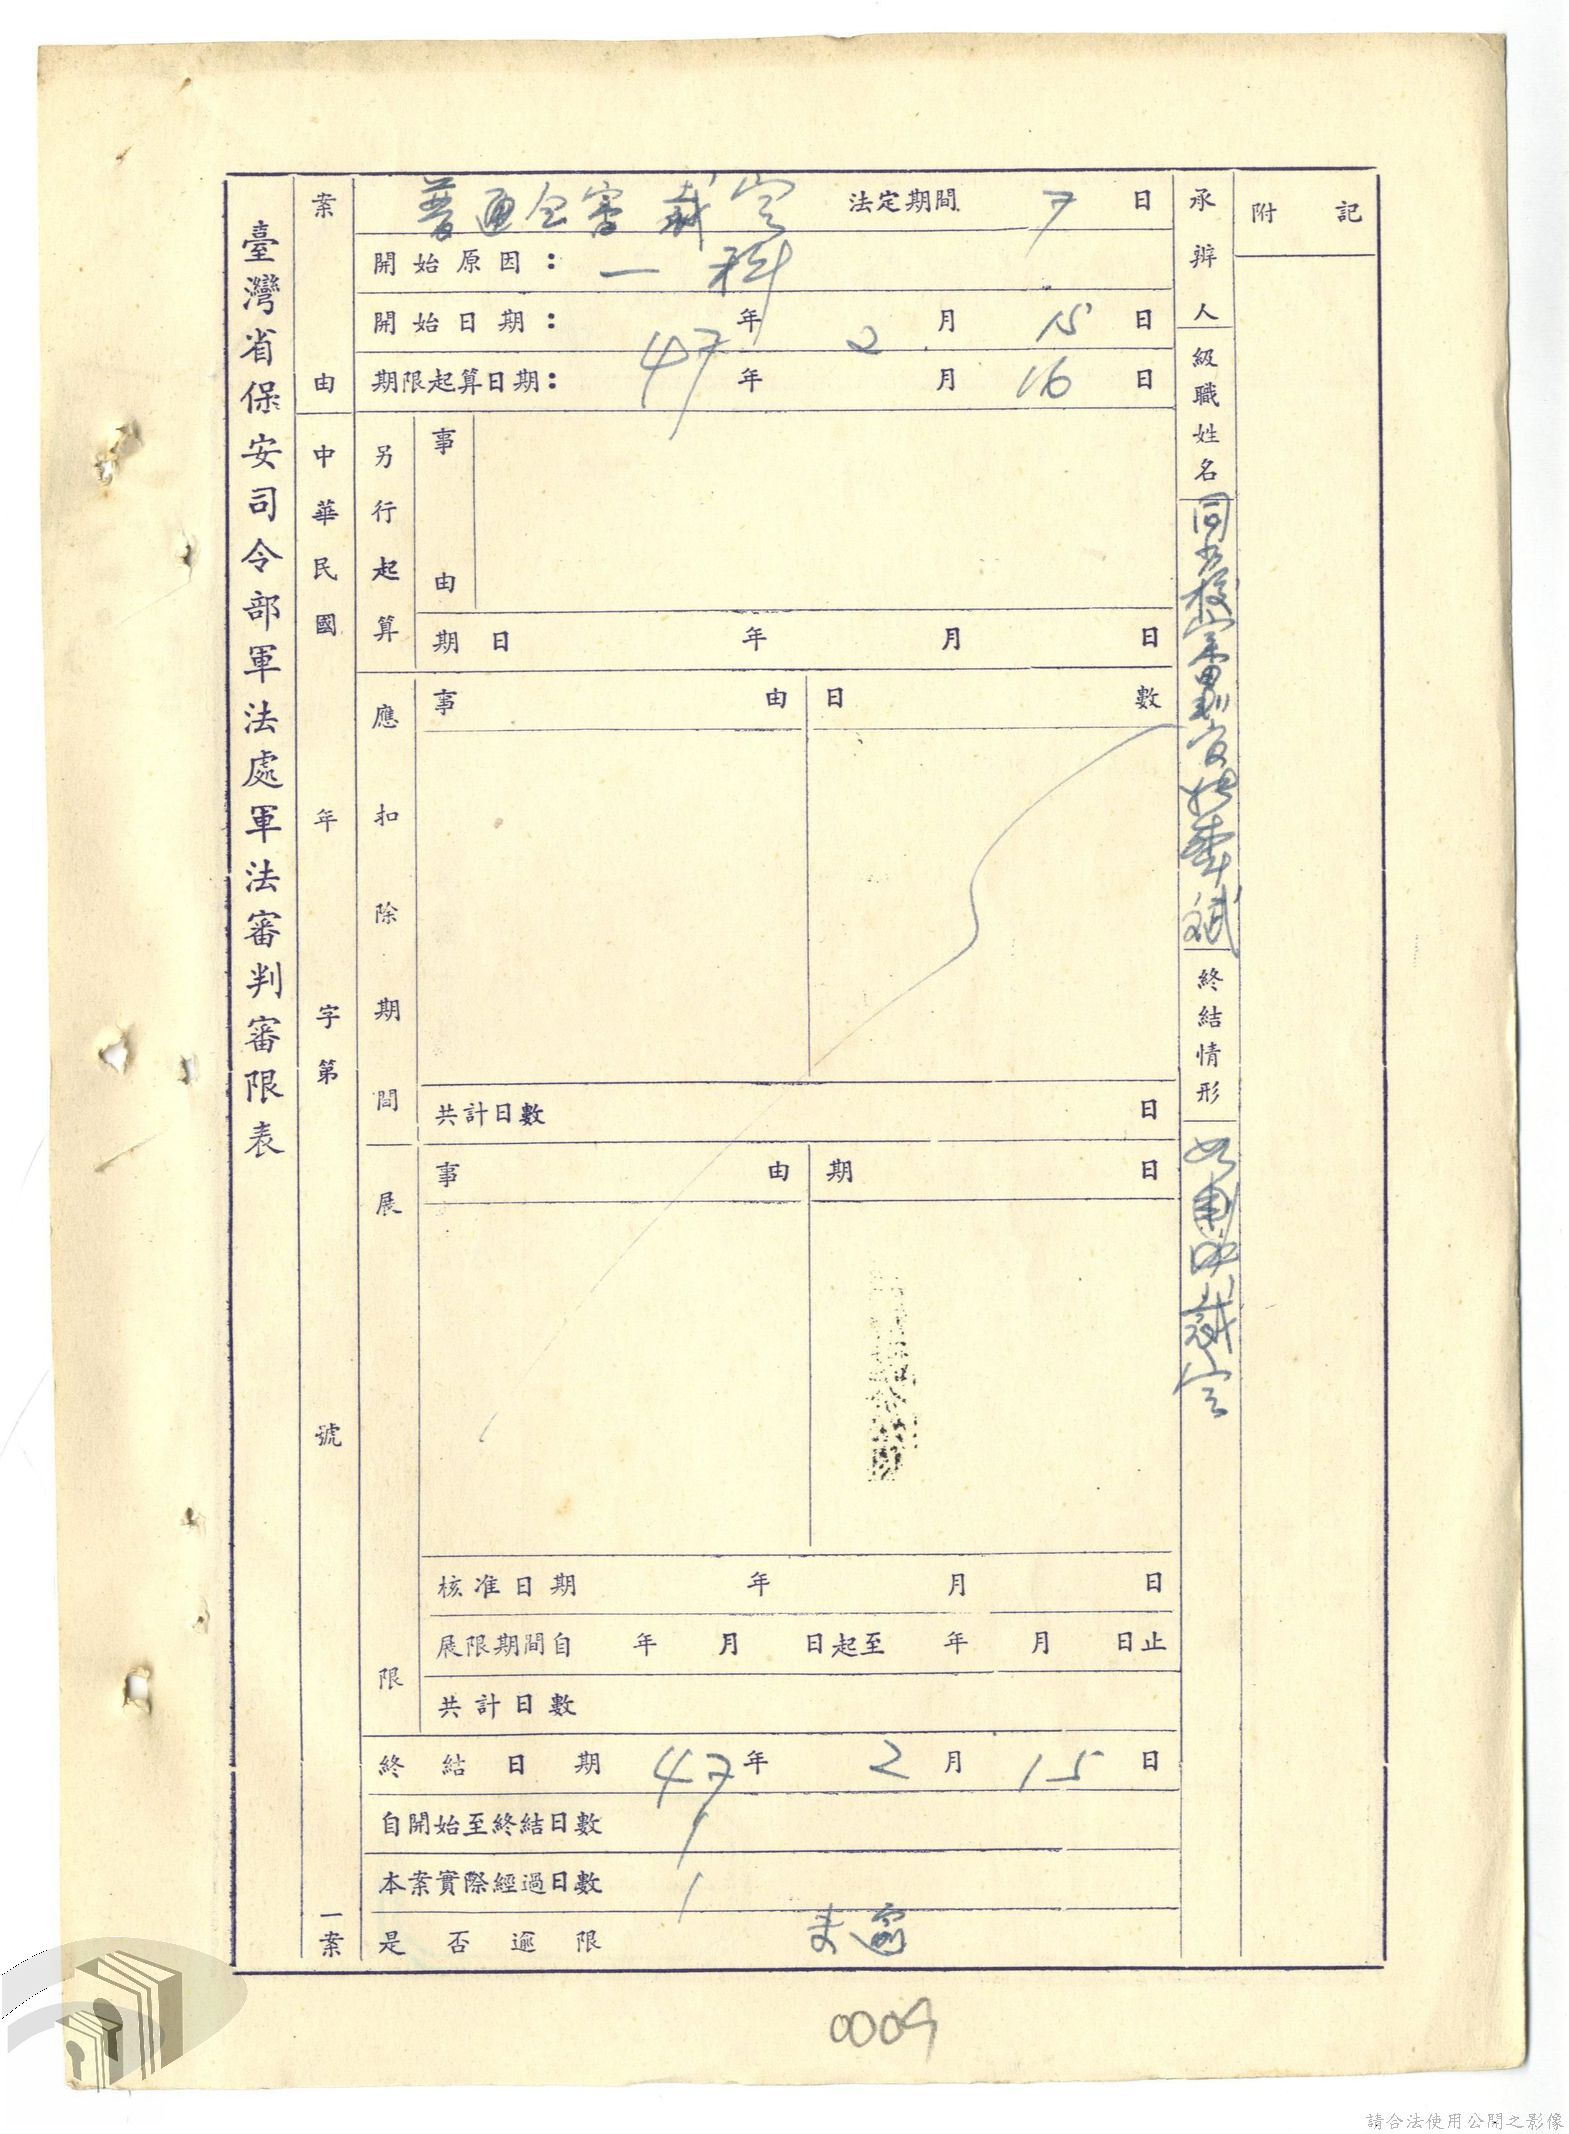 臺灣省保安司令部軍法處軍法審判審限表
案由
中華民國 年 字第 號 一案
普通台審裁定 法定期間 7 日
開始原因： 一科
開始日期： 47年 2月 15日
期限起算日期： 年 月 16日
另行起算
事由
期日 年 月 日
應扣除期間
事由 日數
共計日數 日
展限
事由 期日
核准日期 年 月 日
展限期間自 年 月 日起至 年 月 日止
共計日數
終結日期 47年 2月 15日
自開始至終結日數 1
本案實際經過日數 1
是否逾限 未逾
承辦人
級職姓名 同少校審判官
終結情形 裁定
附記
0009
請合法使用公開之影像